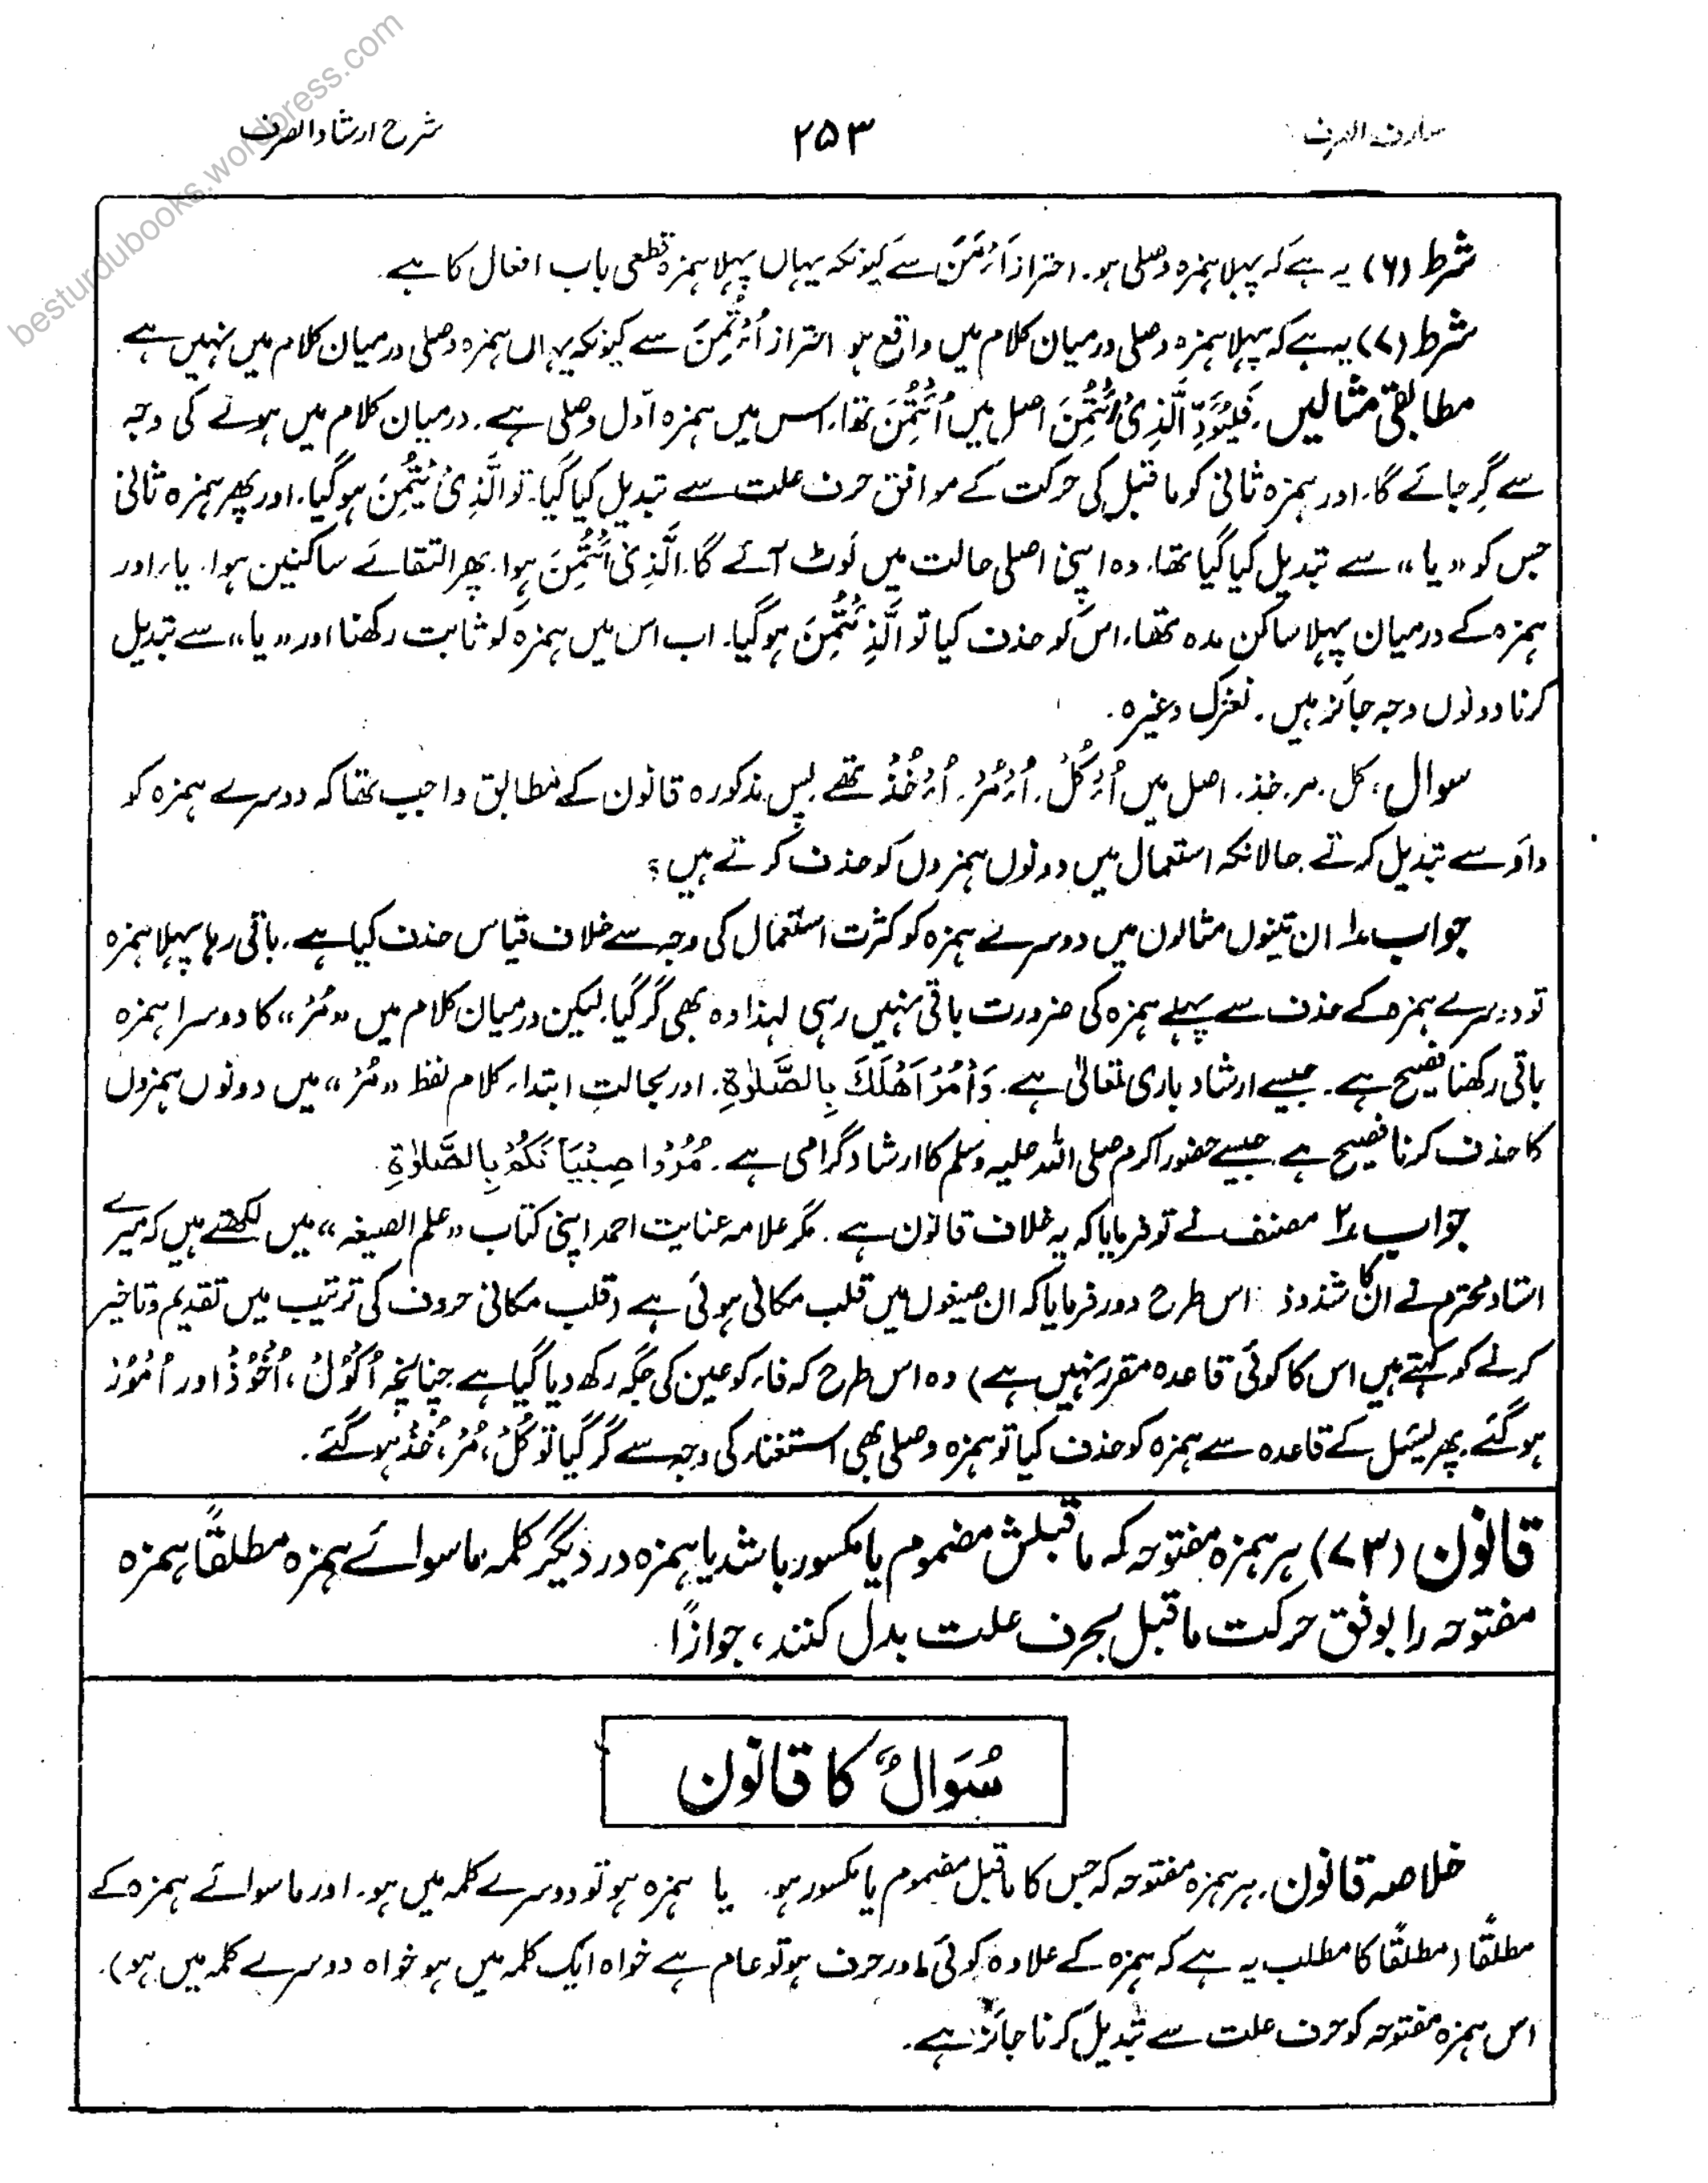 besturdubooks.wordpress.com
شرح ارشاد الصرف
۲۵۳
شرط (۶) یہ ہے کہ پہلا ہمزہ وصلی ہو۔ احتراز أَءْمَنَ سے کیونکہ یہاں پہلا ہمزہ قطعی باب افعال کا ہے۔
شرط (۷) یہ ہے کہ پہلا ہمزہ وصلی درمیان کلام میں واقع ہو احتراز اُءْتُمِنَ سے کیونکہ یہاں ہمزہ وصلی درمیان کلام میں نہیں ہے
مطابقی مثالیں۔ فَلْيُؤَدِّ الَّذِىْ اؤْتُمِنَ اصل میں اُئْتُمِنَ تھا۔ اس میں ہمزہ اوّل وصلی ہے۔ درمیان کلام میں ہونے کی وجہ
سے گر جائے گا۔ اور ہمزہ ثانی کو ماقبل کی حرکت کے موافق حرف علت سے تبدیل کیا گیا۔ تو الَّذِىْ يْتُمِنَ ہوگیا۔ اور پھر ہمزہ ثانی
جس کو «یا» سے تبدیل کیا گیا تھا۔ وہ اپنی اصلی حالت میں لوٹ آئے گا۔ الَّذِىْ ائْتُمِنَ ہوا۔ پھر التقائے ساکنین ہوا۔ یاء اور
ہمزہ کے درمیان پہلا ساکن مدہ تھا۔ اس کو حذف کیا تو الَّذِ ئْتُمِنَ ہوگیا۔ اب اس میں ہمزہ کو ثابت رکھنا اور «یا» سے تبدیل
کرنا دونوں وجہ جائز ہیں۔ وغیرہ۔
سوال، کل۔ مر۔ خذ۔ اصل میں اُءْكُلْ۔ اُءْمُرْ۔ اُءْخُذْ تھے پس مذکورہ قانون کے مطابق واجب تھا کہ دوسرے ہمزہ کو
واؤ سے تبدیل کرتے حالانکہ استعمال میں دونوں ہمزوں کو حذف کرتے ہیں؟
جواب ۱ ان تینوں مثالوں میں دوسرے ہمزہ کو کثرت استعمال کی وجہ سے خلاف قیاس حذف کیا ہے۔ باقی رہا پہلا ہمزہ
تو دوسرے ہمزہ کے حذف سے پہلے ہمزہ کی ضرورت باقی نہیں رہی لہذا وہ بھی گر گیا۔ لیکن درمیان کلام میں «مُرْ» کا دوسرا ہمزہ
باقی رکھنا فصیح ہے۔ جیسے ارشاد باری تعالیٰ ہے۔ وَأْمُرْ اَهْلَكَ بِالصَّلٰوةِ۔ اور بحالتِ ابتداء کلام لفظ «مُرْ» میں دونوں ہمزوں
کا حذف کرنا فصیح ہے جیسے حضور اکرم صلی اللہ علیہ وسلم کا ارشاد گرامی ہے۔ مُرُوْا صِبْيَانَكُمْ بِالصَّلٰوةِ۔
جواب ۲ مصنف نے تو فرمایا کہ یہ خلاف قانون ہے۔ مگر علامہ عنایت احمد اپنی کتاب «علم الصیغہ» میں لکھتے ہیں کہ میرے
استاد محترم نے ان کا شذوذ اس طرح دور فرمایا کہ ان صیغوں میں قلب مکانی ہوئی ہے (قلب مکانی حروف کی ترتیب میں تقدیم وتاخیر
کرنے کو کہتے ہیں اس کا کوئی قاعدہ مقرر نہیں ہے) وہ اس طرح کہ فاء کو عین کی جگہ رکھ دیا گیا ہے چنانچہ اُكْؤُلْ، اُخْؤُذْ اور اُمْؤُرْ
ہوگئے۔ پھر یسل کے قاعدہ سے ہمزہ کو حذف کیا تو ہمزہ وصلی بھی استغناء کی وجہ سے گر گیا تو كُلْ، مُرْ، خُذْ ہوگئے۔
قانون (۷۳) ہر ہمزہ مفتوحہ کہ ماقبلش مضموم یا مکسور باشد یا ہمزہ در دیگر کلمہ ماسوائے ہمزہ مطلقًا ہمزہ
مفتوحہ را بوفق حرکت ماقبل بحرف علت بدل کنند، جوازًا
سُوَالٌ کا قانون
خلاصہ قانون۔ ہر ہمزہ مفتوحہ کہ جس کا ماقبل مضموم یا مکسور ہو۔ یا ہمزہ ہو تو دوسرے کلمہ میں ہو۔ اور ماسوائے ہمزہ کے
مطلقًا (مطلقًا کا مطلب یہ ہے کہ ہمزہ کے علاوہ کوئی اور حرف ہو تو عام ہے خواہ ایک کلمہ میں ہو خواہ دوسرے کلمہ میں ہو)۔
اس ہمزہ مفتوحہ کو حرف علت سے تبدیل کرنا جائز ہے۔